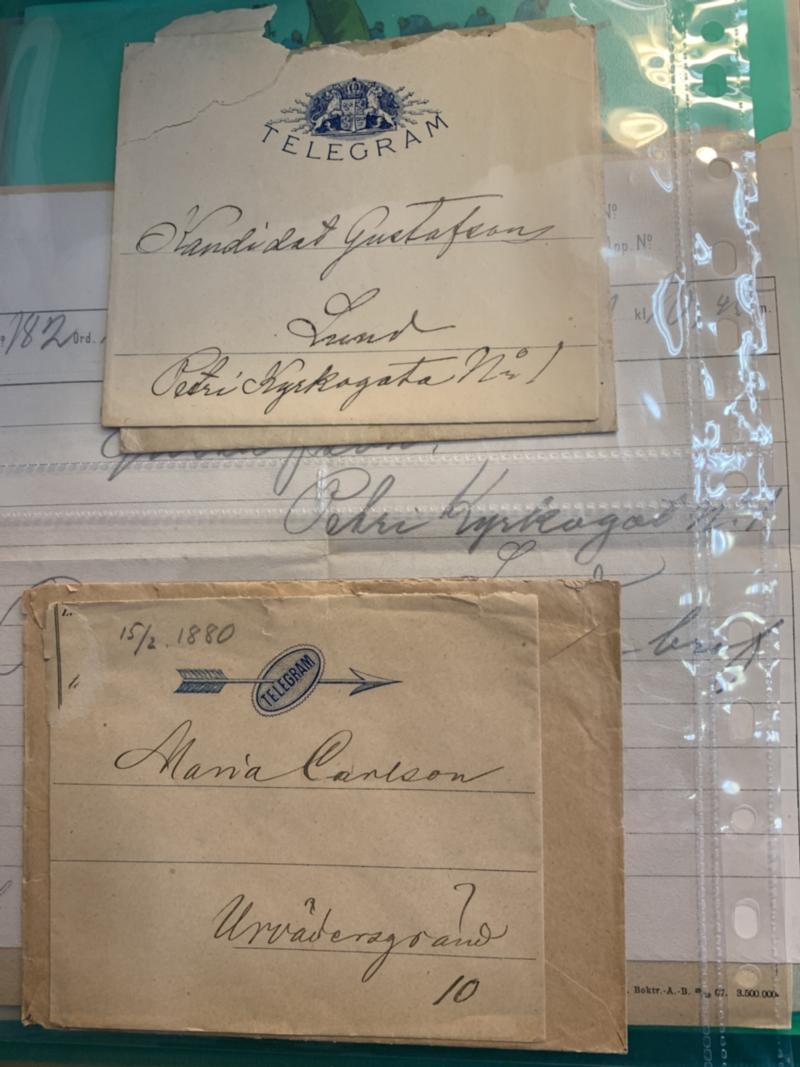 TELEGRAM
Kandidat Gustafson
Lund
Petri Kyrkogata No 1
No
App. No
182 Ord.
kl.
Petri Kyrkogat N. 1
15/2. 1880
TELEGRAM
Maria Carlson
Urvädersgränd
10
Boktr.-A.-B. 07. 3.500.000.